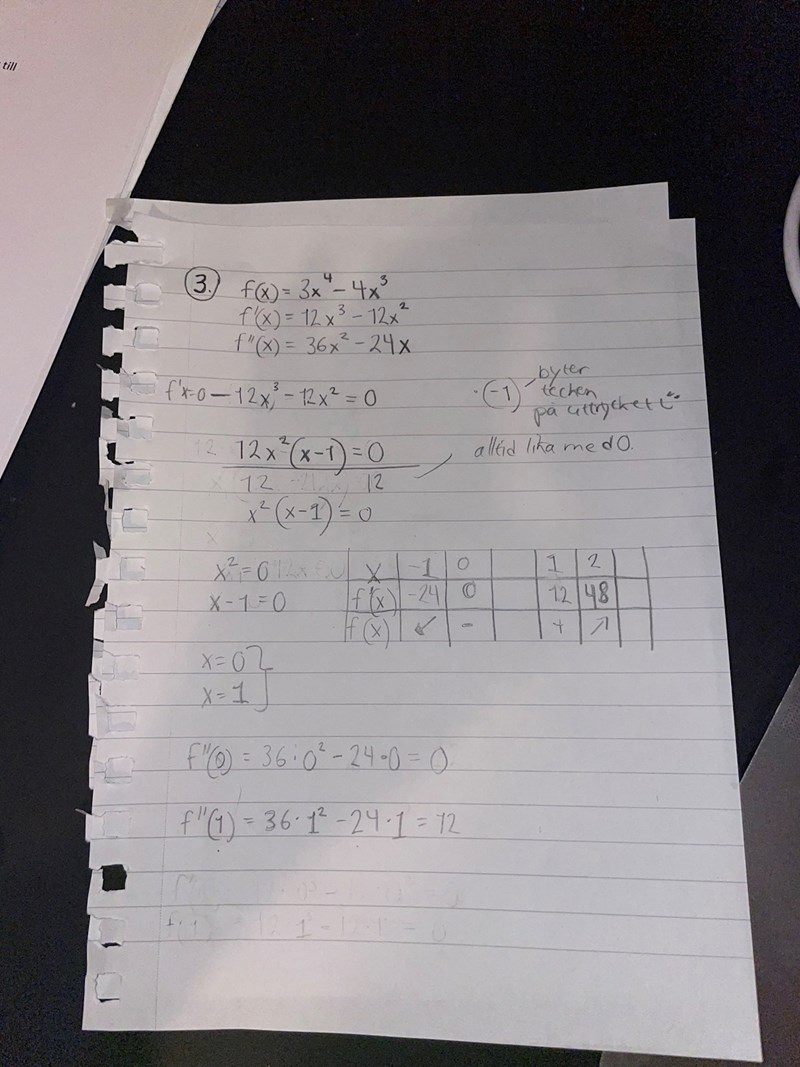 till
3. f(x) = 3x⁴ - 4x³
f'(x) = 12x³ - 12x²
f''(x) = 36x² - 24x
f'x=0 — 12x³ - 12x² = 0
·(-1) byter
tecken
på uttrycket
12x²(x-1) = 0
12 12
alltid lika med 0.
x²(x-1) = 0
x² = 0
x - 1 = 0
x -1 0 1 2
f'(x) -24 0 12 48
f(x) ↙ - + ↗
x = 0
x = 1
f''(0) = 36·0² - 24·0 = 0
f''(1) = 36·1² - 24·1 = 12